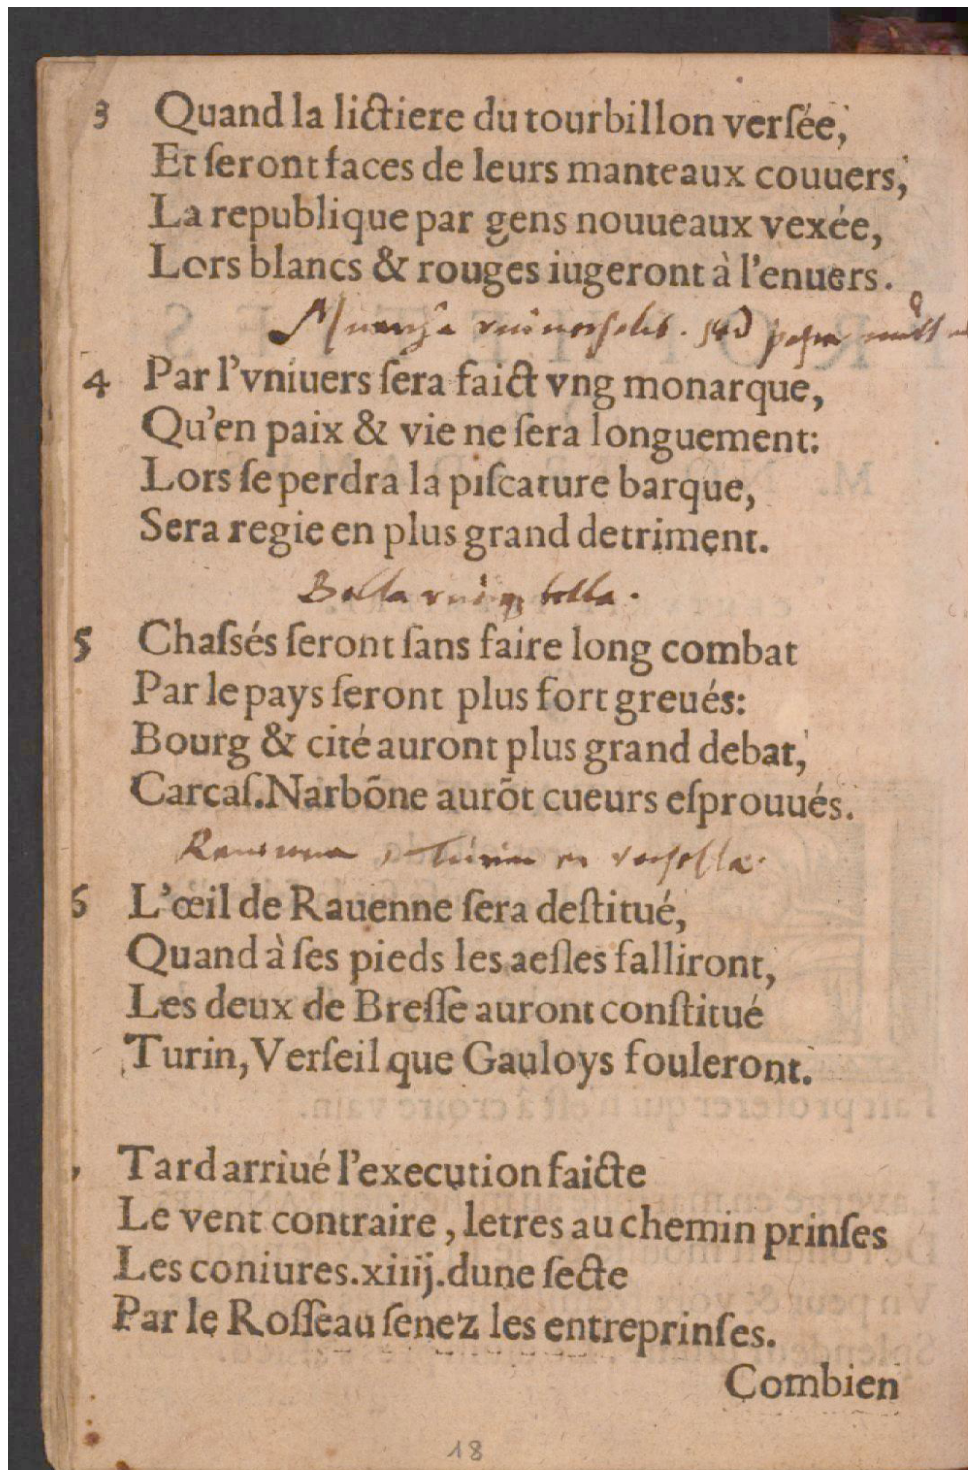 3 Quand la lictiere du tourbillon verſée,
Et ſeront faces de leurs manteaux couuers,
La republique par gens nouueaux vexée,
Lors blancs & rouges iugeront à l'enuers.
4 Par l'vniuers ſera faict vng monarque,
Qu'en paix & vie ne ſera longuement:
Lors ſe perdra la piſcature barque,
Sera regie en plus grand detriment.
Bella bella.
5 Chaſsés ſeront ſans faire long combat
Par le pays ſeront plus fort greués:
Bourg & cité auront plus grand debat,
Carcaſ.Narbõne aurõt cueurs eſprouués.
6 L'œil de Rauenne ſera deſtitué,
Quand à ſes pieds les aeſles falliront,
Les deux de Breſſe auront conſtitué
Turin, Verſeil que Gauloys fouleront.
Tard arriué l'execution faicte
Le vent contraire, letres au chemin prinſes
Les coniures.xiiij.dune ſecte
Par le Roſſeau ſenez les entreprinſes.
Combien
18